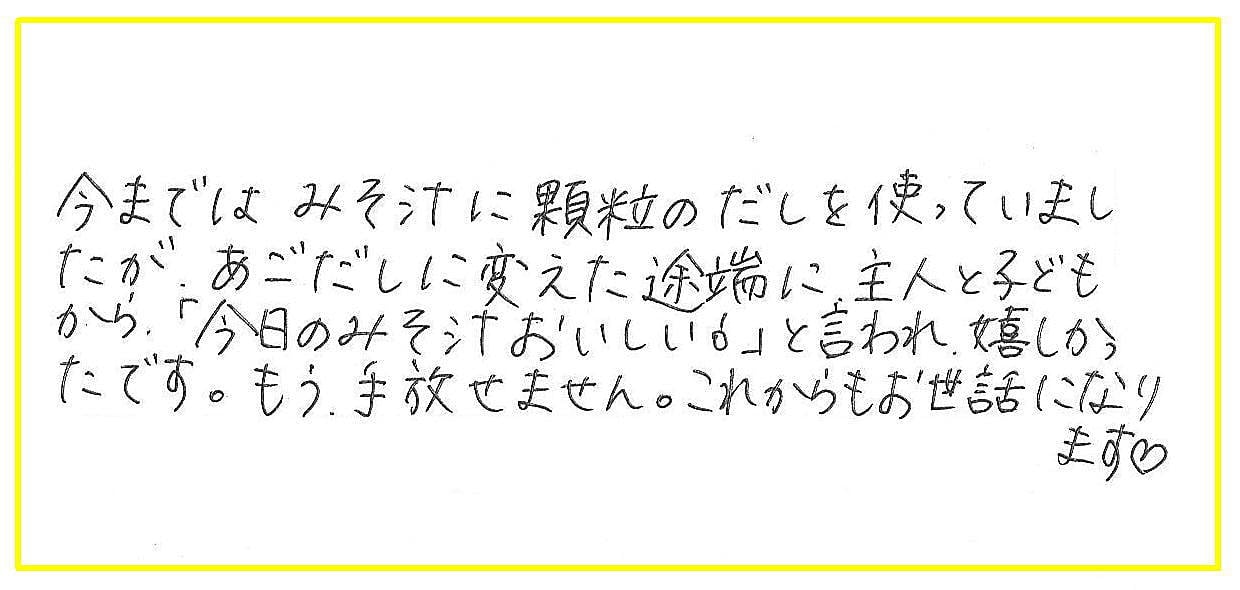 今までは みそ汁に顆粒のだしを使っていまし
たが、あごだしに変えた途端に、主人と子ども
から、「今日のみそ汁おいしい6」と言われ、嬉しかっ
たです。もう、手放せません。これからもお世話になり
ます♡